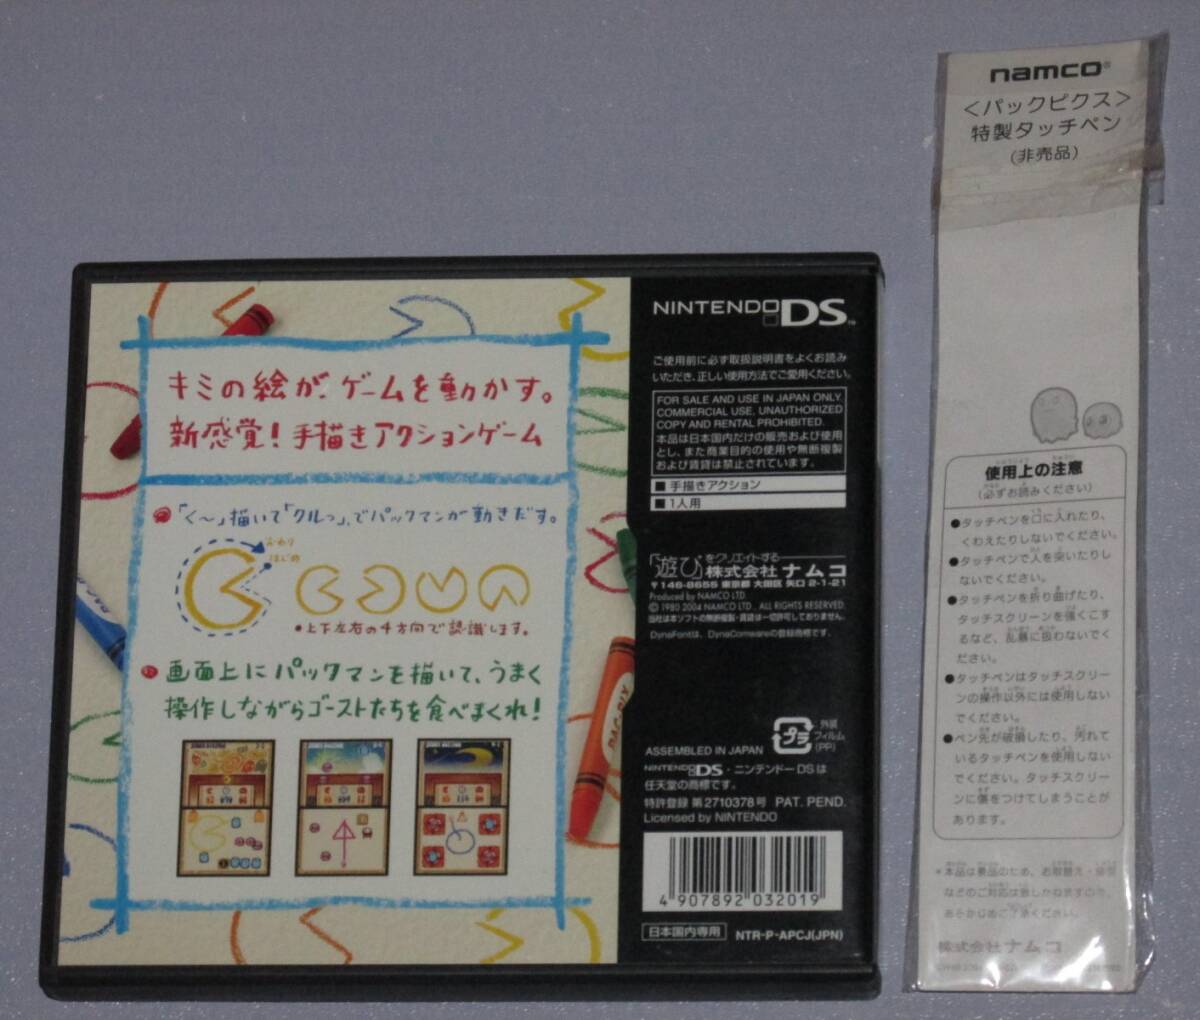 キミの絵が、ゲームを動かす。
新感覚！手描きアクションゲーム
「く〜」描いて「クルっ」、でパックマンが動きだす。
おわり
はじめ
●上下左右の4方向で認識します。
画面上にパックマンを描いて、うまく
操作しながらゴーストたちを食べまくれ！
NINTENDO DS™
ご使用前に必ず取扱説明書をよくお読み
いただき、正しい使用方法でご愛用ください。
FOR SALE AND USE IN JAPAN ONLY.
COMMERCIAL USE, UNAUTHORIZED
COPY AND RENTAL PROHIBITED.
本品は日本国内だけの販売および使用
とし、また商業目的の使用や無断複製
および賃貸は禁止されています。
■ 手描きアクション
■ 1人用
「遊び」をクリエイトする
株式会社 ナムコ
〒146-8655 東京都 大田区 矢口 2-1-21
Produced by NAMCO LTD.
© 1980 2004 NAMCO LTD., ALL RIGHTS RESERVED.
当社は本ソフトの無断複製・賃貸は一切許可しておりません。
DynaFontは、DynaComwareの登録商標です。
プラ
外装
フィルム
(PP)
ASSEMBLED IN JAPAN
NINTENDO DS・ニンテンドーDSは
任天堂の商標です。
特許登録 第2710378号 PAT. PEND.
Licensed by NINTENDO
4 907892 032019
日本国内専用
NTR-P-APCJ(JPN)
namco®
＜パックピクス＞
特製タッチペン
(非売品)
使用上の注意
(必ずお読みください)
●タッチペンを口に入れたり、
くわえたりしないでください。
●タッチペンで人を突いたりし
ないでください。
●タッチペンを折り曲げたり、
タッチスクリーンを強くこす
るなど、乱暴に扱わないでく
ださい。
●タッチペンはタッチスクリー
ンの操作以外には使用しない
でください。
●ペン先が破損したり、汚れて
いるタッチペンを使用しない
でください。タッチスクリー
ンに傷をつけてしまうことが
あります。
*本品は景品のため、お取替え・修理
などのご対応は致しかねますので、
あらかじめご了承ください。
株式会社 ナムコ